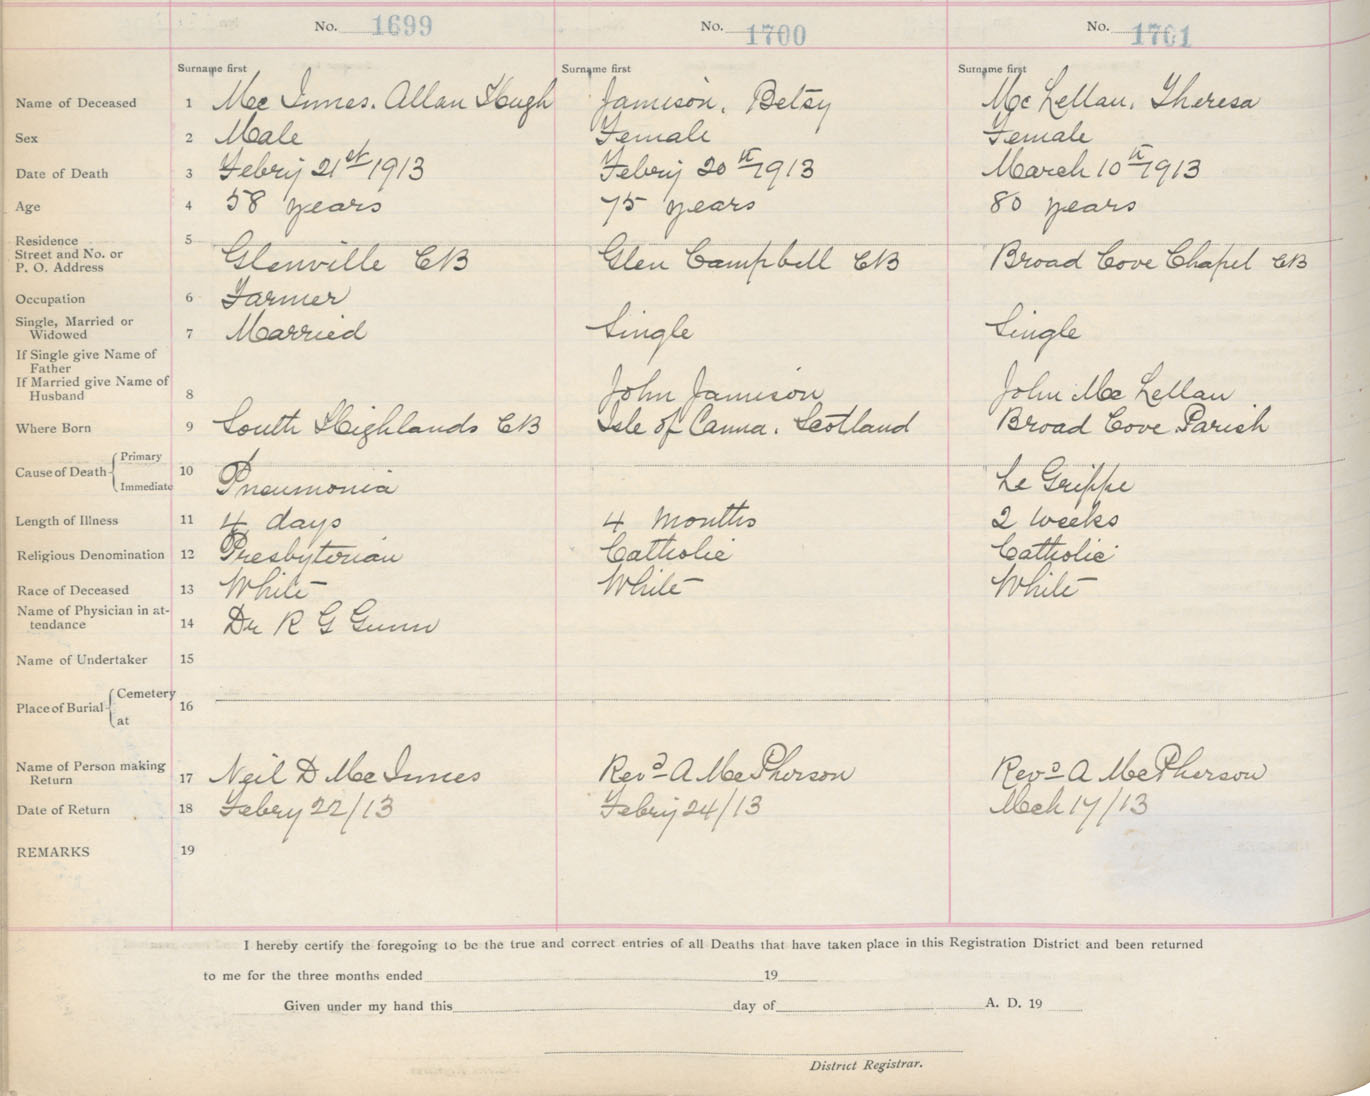 No. 1699 No. 1700 No. 1701
Surname first Surname first Surname first
Name of Deceased 1 Mac Innes, Allan Hugh Jamison, Betsy Mc Lellan, Theresa
Sex 2 Male Female Female
Date of Death 3 Febry 21st 1913 Febry 20th 1913 March 10th 1913
Age 4 58 years 75 years 80 years
Residence 5
Street and No. or
P. O. Address Glenville CB Glen Campbell CB Broad Cove Chapel CB
Occupation 6 Farmer
Single, Married or
Widowed 7 Married Single Single
If Single give Name of
Father
If Married give Name of
Husband 8 John Jamison John Mac Lellan
Where Born 9 South Highlands CB Isle of Canna, Scotland Broad Cove Parish
Cause of Death Primary 10
Immediate Pneumonia Le Grippe
Length of Illness 11 4 days 4 months 2 weeks
Religious Denomination 12 Presbyterian Catholic Catholic
Race of Deceased 13 White White White
Name of Physician in at-
tendance 14 Dr R G Gunn
Name of Undertaker 15
Place of Burial Cemetery 16
at
Name of Person making
Return 17 Neil D Mac Innes Revd A MacPherson Revd A MacPherson
Date of Return 18 Febry 22/13 Febry 24/13 Mch 17/13
REMARKS 19
I hereby certify the foregoing to be the true and correct entries of all Deaths that have taken place in this Registration District and been returned
to me for the three months ended 19
Given under my hand this day of A. D. 19
District Registrar.